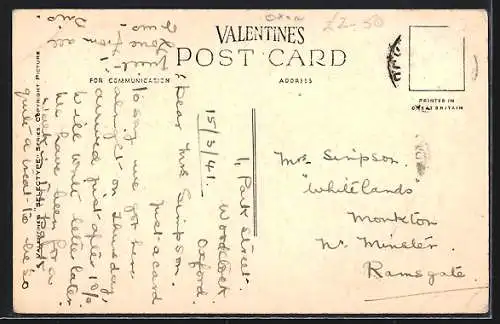 VALENTINE'S
POST CARD
FOR COMMUNICATION
ADDRESS
PRINTED IN
GREAT BRITAIN
£2-50
1, Park Street
Woodstock
Oxford.
15/3/41.
Dear Mrs Simpson.
Just a card
to say we got here
alright on Thursday,
arrived just after 10/o
Will write letter later.
We have been for a
walk in the park
quite a treat to be so
quiet!
Love from all
Mrs. Simpson.
"Whitelands
Monkton
Nr. Minster
Ramsgate.